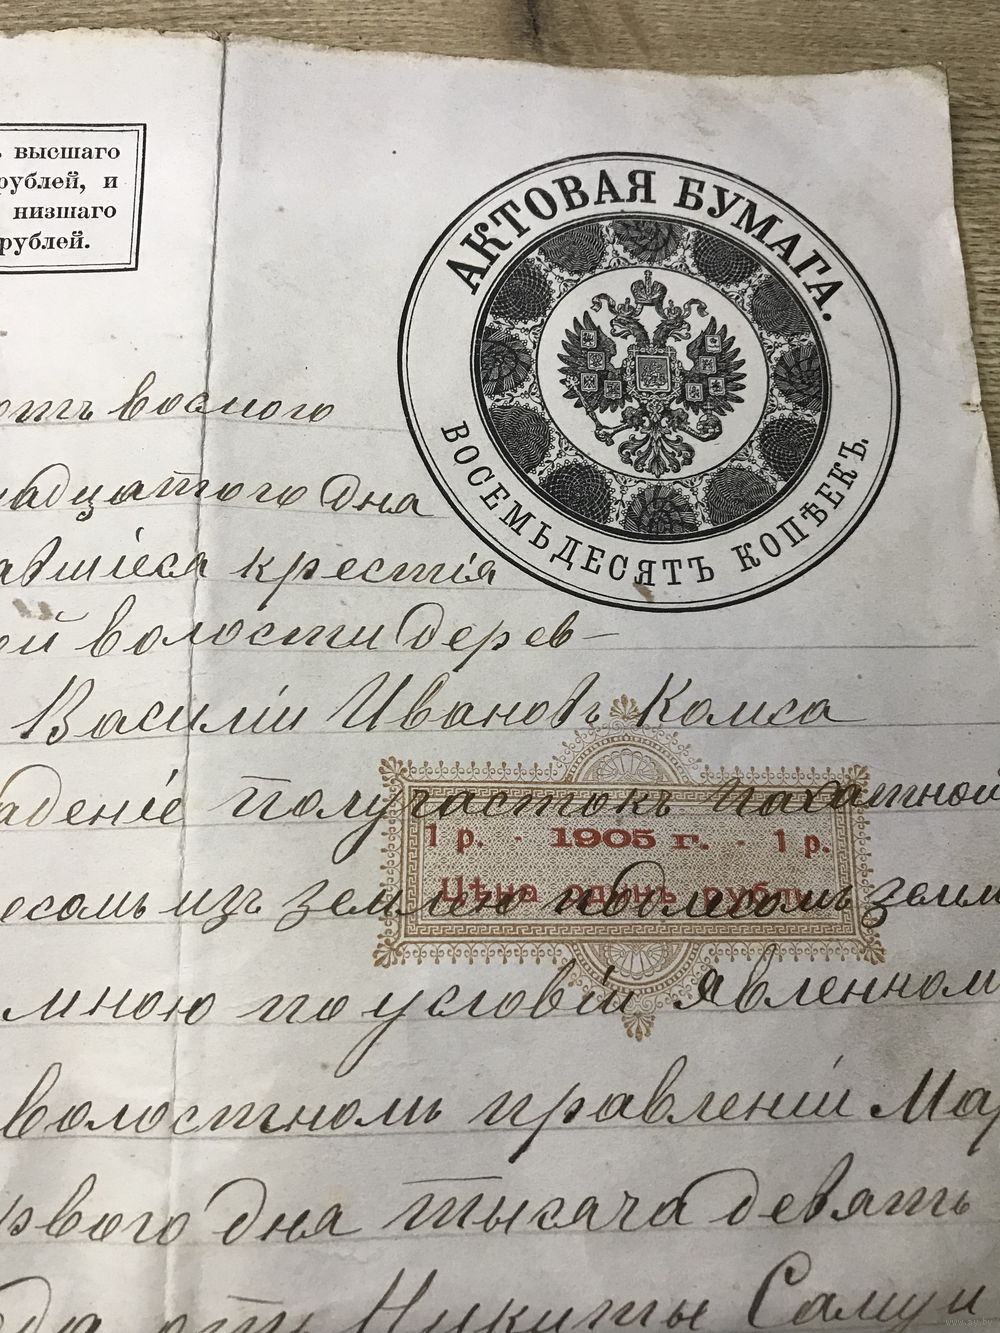 ъ высшаго
рублей, и
низшаго
рублей.
АКТОВАЯ БУМАГА.
ВОСЕМЬДЕСЯТЪ КОПѢЕКЪ.
отъ восмого
надцатого дня
авшіеся крестія
ой волости дерев-
Василіи Ивановъ Комса
адение полу частокъ пахатной
1 р. - 1905 г. - 1 р.
Цѣна одинъ рубль
есомъ изъ землею подлесомъ земли
мною по условіи явленном
волостномъ правленіи Мар
рвого дня тысяча девять
от Никиты Самуи
www.ay.by